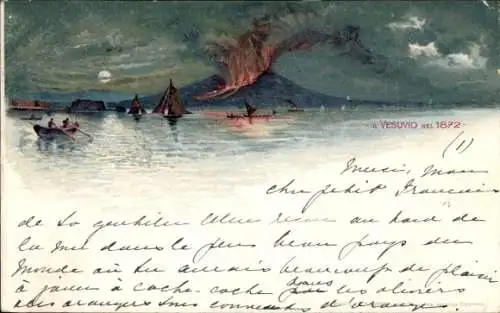 IL VESUVIO NEL 1872
(1)
Merci, Mon
cher petit Francis
de ta gentille Une au bord de
la mer dans le plus beau pays du
Monde où tu aurais beaucoup de plaisir
à jouer à cache-cache dans les oliviers
des orangers d'oranges.